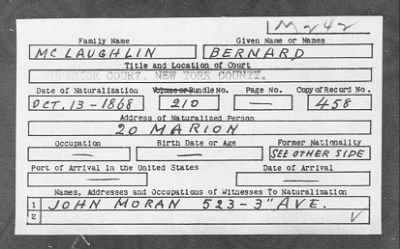 M242
Family Name Given Name or Names
MC LAUGHLIN BERNARD
Title and Location of Court
COURT, NEW YORK COUNTY.
Date of Naturalization Volume or Bundle No. Page No. Copy of Record No.
OCT. 13-1868 210 — 458
Address of Naturalized Person
20 MARION
Occupation Birth Date or Age Former Nationality
— — SEE OTHER SIDE
Port of Arrival in the United States Date of Arrival
— —
Names, Addresses and Occupations of Witnesses To Naturalization
1 JOHN MORAN 523-3" AVE.
2 V